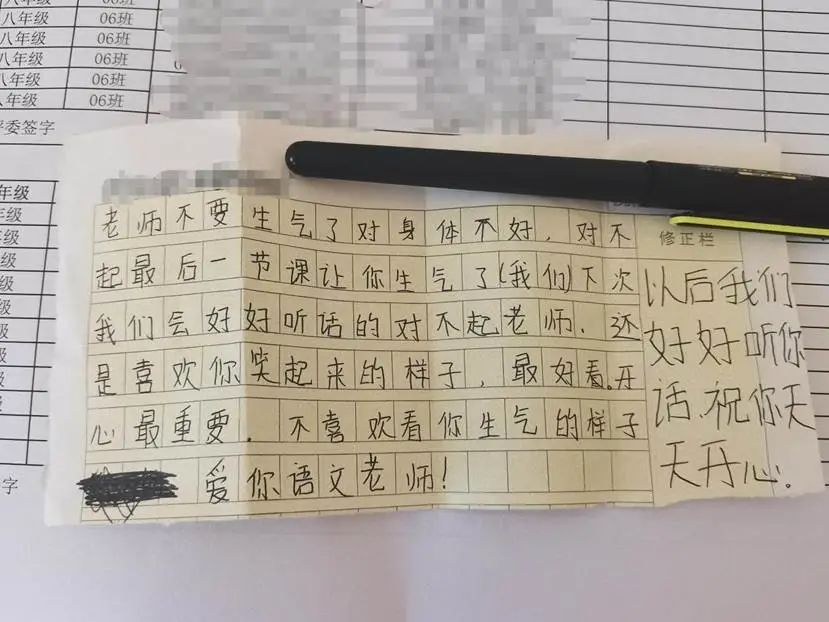 八年级 06班
八年级 06班
八年级 06班
八年级 06班
八年级 06班
评委签字
年级
年级
级
级
级
级
级
级
字
老师不要生气了对身体不好，对不
起最后一节课让你生气了(我们)下次
我们会好好听话的对不起老师．还
是喜欢你笑起来的样子，最好看．开
心最重要．不喜欢看你生气的样子
爱你语文老师！
修正栏
以后我们
好好听你
话．祝你天
天开心．